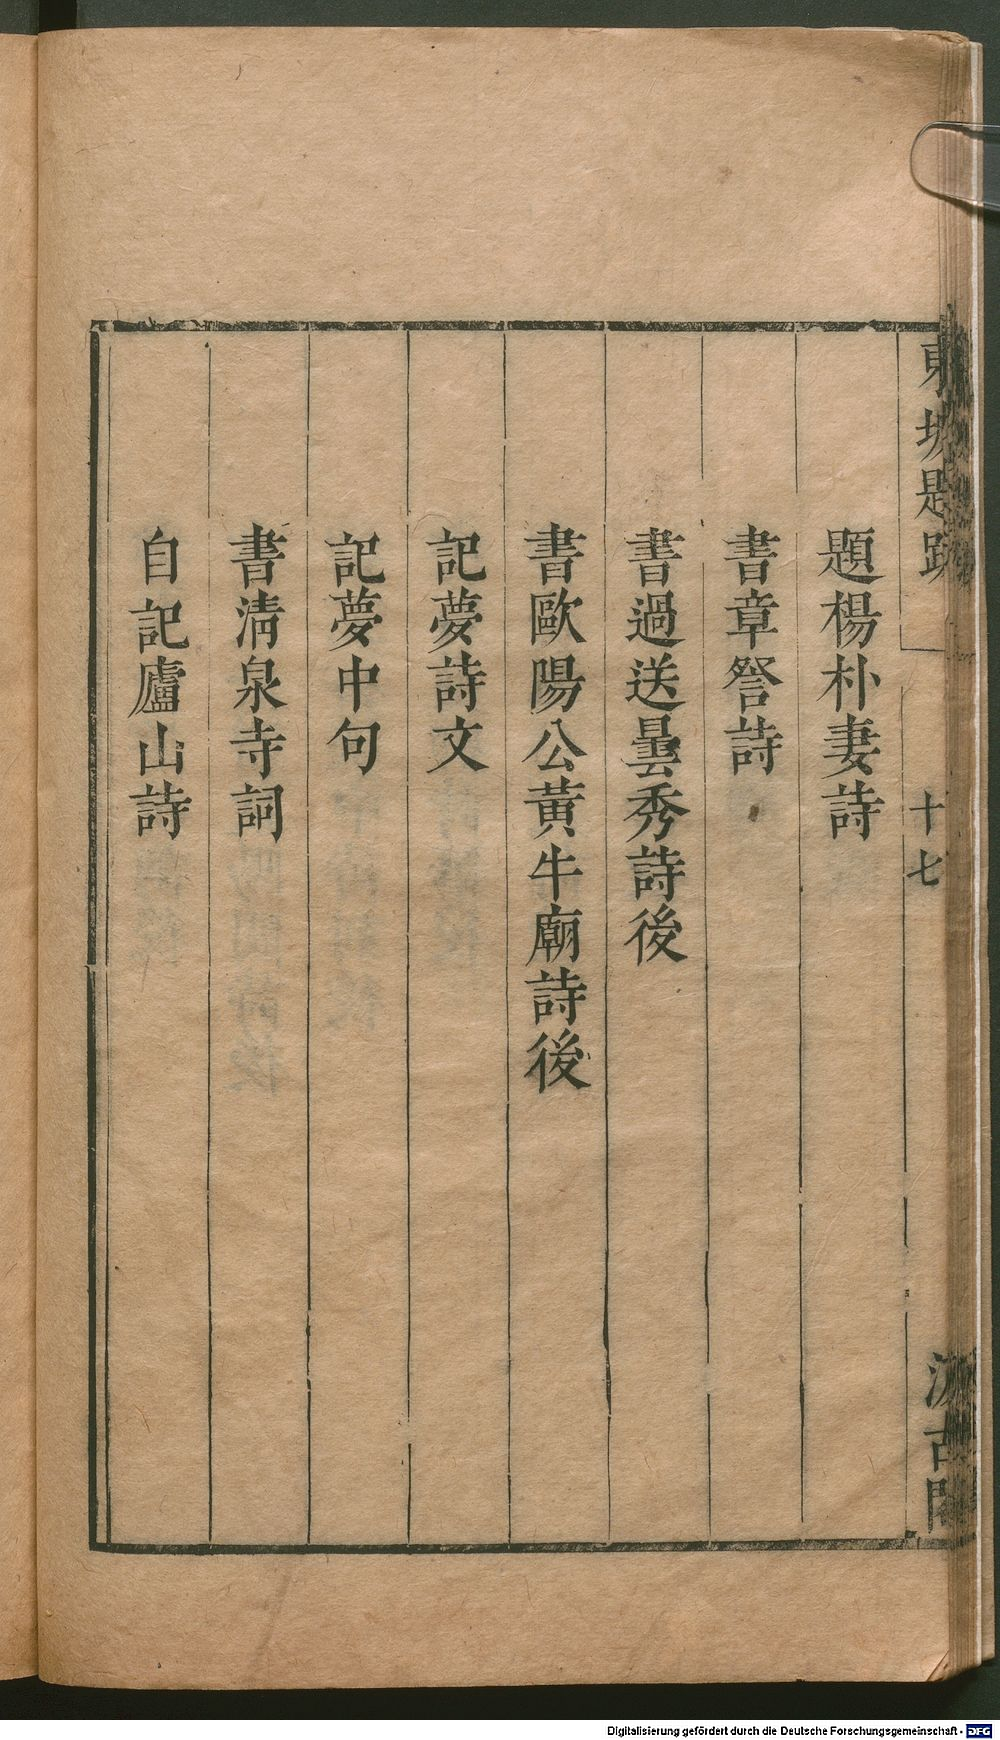 東坡題跋
十七
汲古閣
題楊朴妻詩
書章詧詩
書過送曇秀詩後
書歐陽公黃牛廟詩後
記夢詩文
記夢中句
書清泉寺詞
自記廬山詩
Digitalisierung gefördert durch die Deutsche Forschungsgemeinschaft - DFG